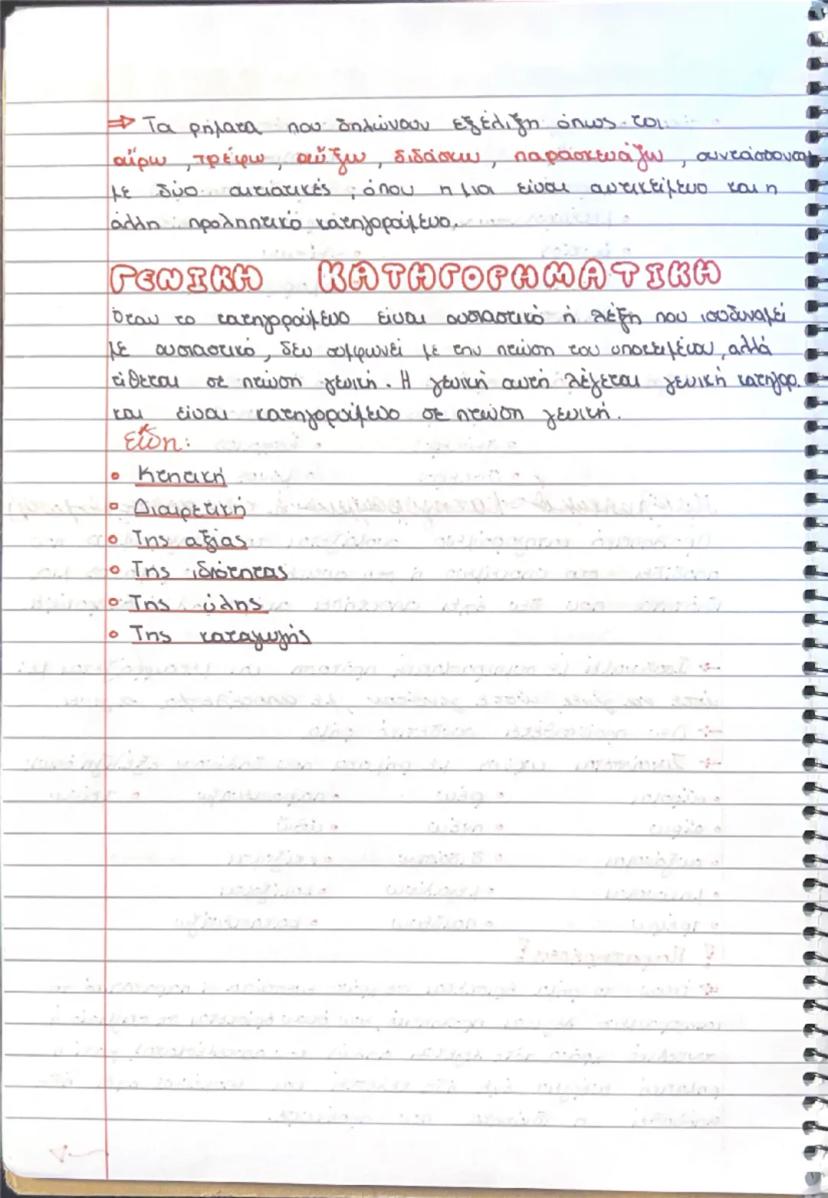 ⇒ Τα ρήματα που δηλώνουν εξέλιξη όπως τα:
αἴρω, τρέφω, αὔξω, διδάσκω, παρασκευάζω, συντάσσονται
με δύο αιτιατικές, όπου η μια είναι αντικείμενο και η
άλλη προληπτικό κατηγορούμενο.
ΓΕΝΙΚΗ ΚΑΤΗΓΟΡΗΜΑΤΙΚΗ
Όταν το κατηγορούμενο είναι ουσιαστικό ή λέξη που ισοδυναμεί
με ουσιαστικό, δεν συμφωνεί με την πτώση του υποκειμένου, αλλά
τίθεται σε πτώση γενική. Η γενική αυτή λέγεται γενική κατηγορ.
και είναι κατηγορούμενο σε πτώση γενική.
Είδη:
• Κτητική
• Διαιρετική
• Της αξίας
• Της ιδιότητας
• Της ύλης
• Της καταγωγής